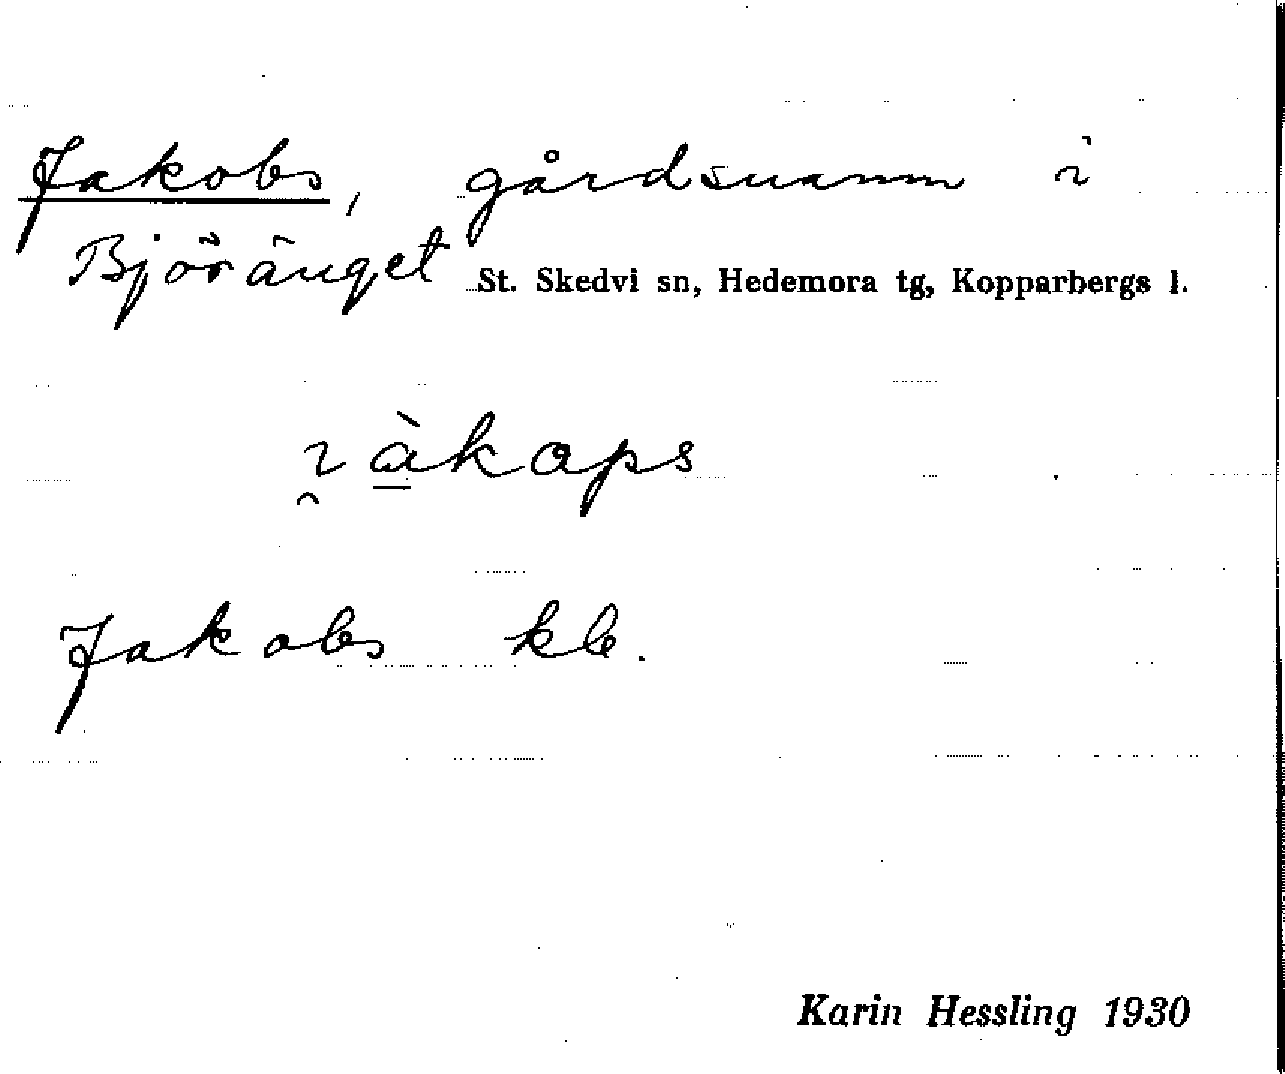 Jakobs, gårdsnamn i
Björänget St. Skedvi sn, Hedemora tg, Kopparbergs l.
ı̯à̱kaps
Jakobs kb.
Karin Hessling 1930